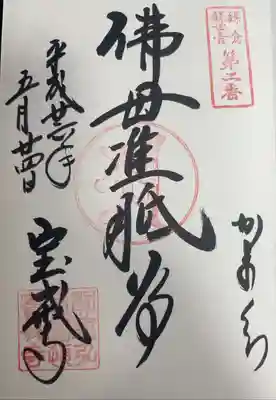 鎌倉
観世音
第二番
かまくら
佛母准胝尊
平成廿六年
五月廿四日
宝戒寺